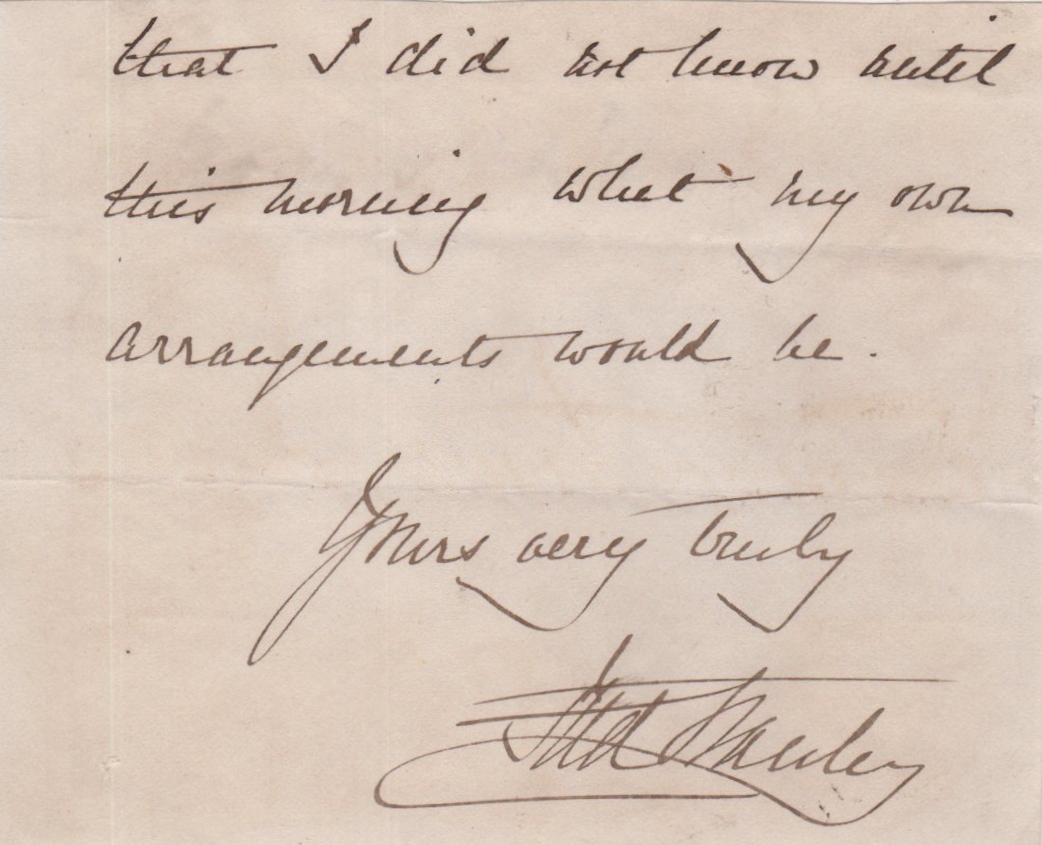 that I did not know until
this morning what my own
arrangements would be.
Yours very truly
Stanley